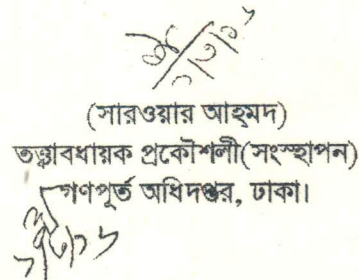 (সারওয়ার আহমদ)
তত্ত্বাবধায়ক প্রকৌশলী(সংস্হাপন)
গণপূর্ত অধিদপ্তর, ঢাকা।